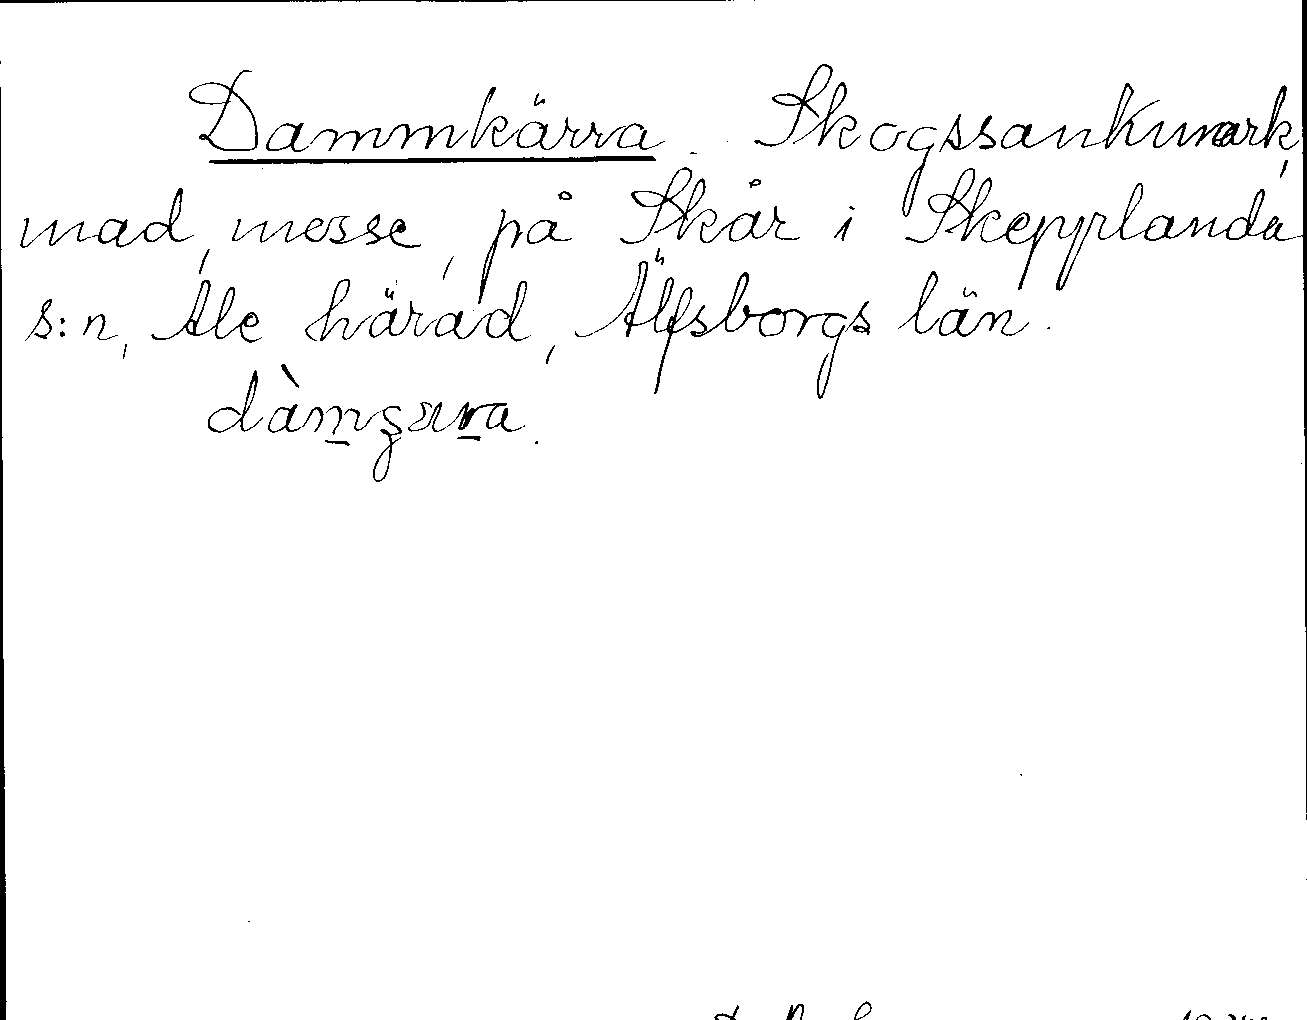 Dammkärra. Skogssankmark,
mad, messe, på Skår i Skepplanda
s:n, Ale härad, Älfsborgs län.